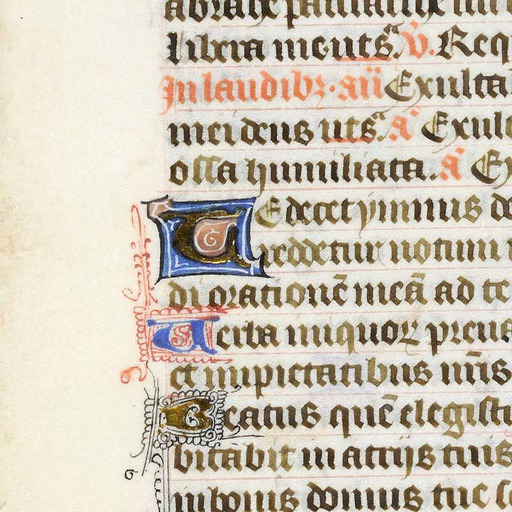 libera me. uts̃. v̄. Req
In laudibꝫ. añ Exulta
mei deus uts̃. a Exult
ossa humiliata. a Ex
TE decet ymnus de
reddetur uotum
di orationē meā ad te
Uerba iniquoꝝ preua
et impietatibus nr̃is
Beatus quē elegisti
bitabit in atrijs tuis
in bonis domus tue